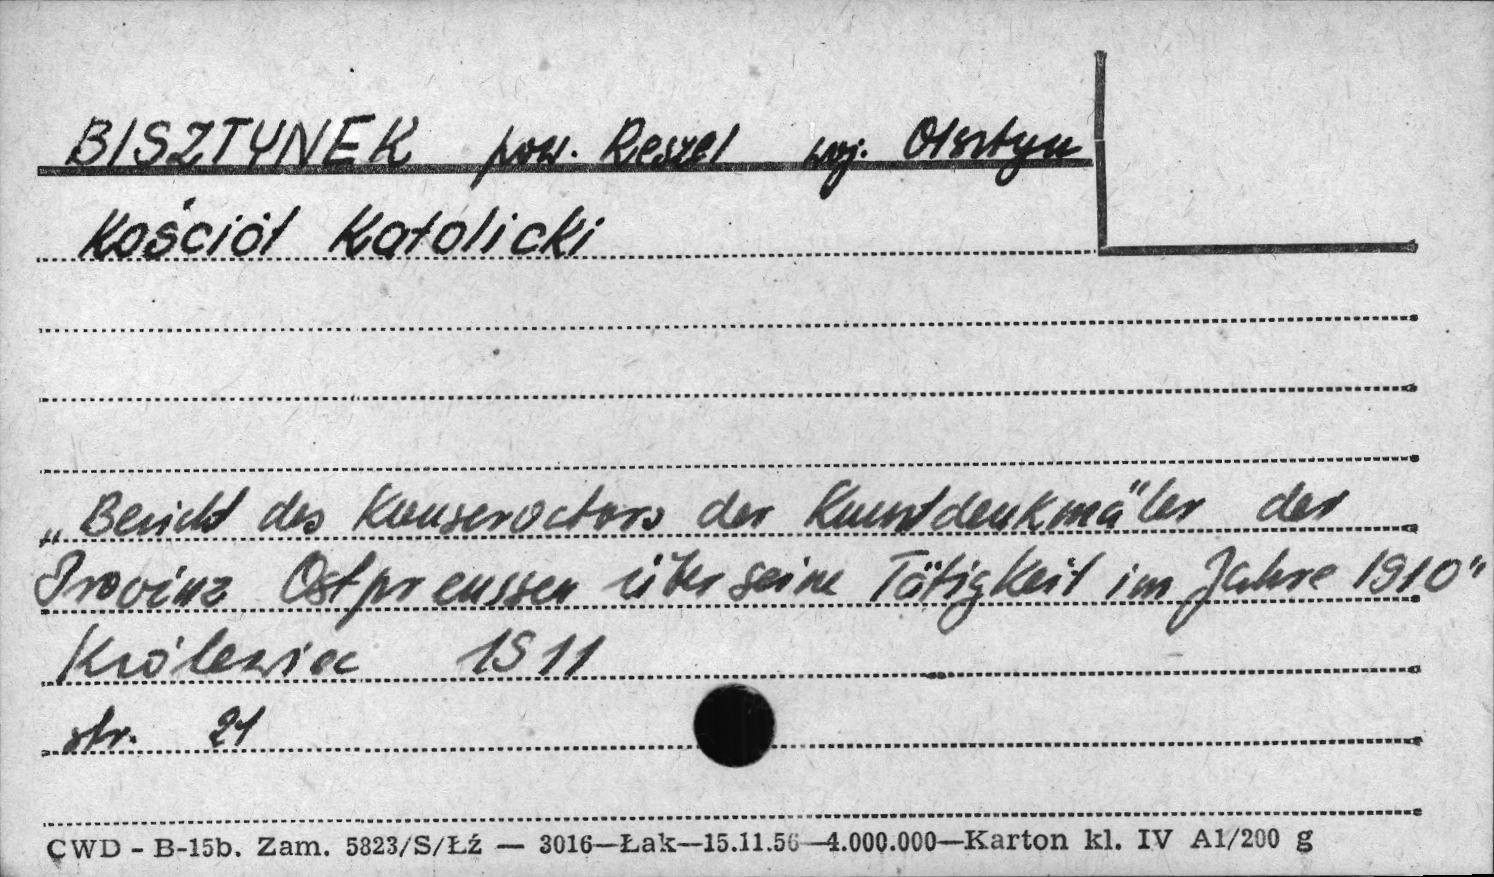 BISZTYNEK pow. Reszel woj. Olsztyn
Kościół Katolicki
„Bericht des Konservators der Kunstdenkmäler der
Provinz Ostpreussen über seine Tätigkeit im Jahre 1910"
Królewiec 1911
str. 21
CWD - B-15b. Zam. 5823/S/Łź — 3016—Łak—15.11.56—4.000.000—Karton kl. IV A1/200 g